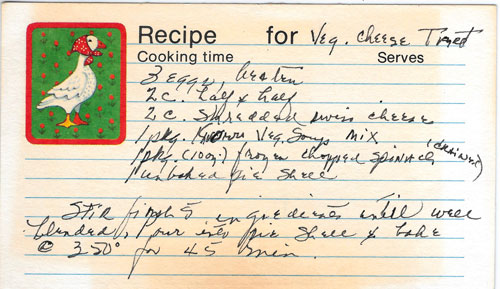 Recipe for Veg. Cheese
Cooking time Serves
3 eggs, beaten
2 c. half & half
2 c. Shredded swiss cheese
1 pkg. Knorrs Veg. Soup Mix
1 pkg. (10 oz.) frozen chopped spinach (drained)
1 unbaked pie shell
Stir first 5 ingredients until well
blended, pour into pie shell & bake
@ 350° for 45 min.